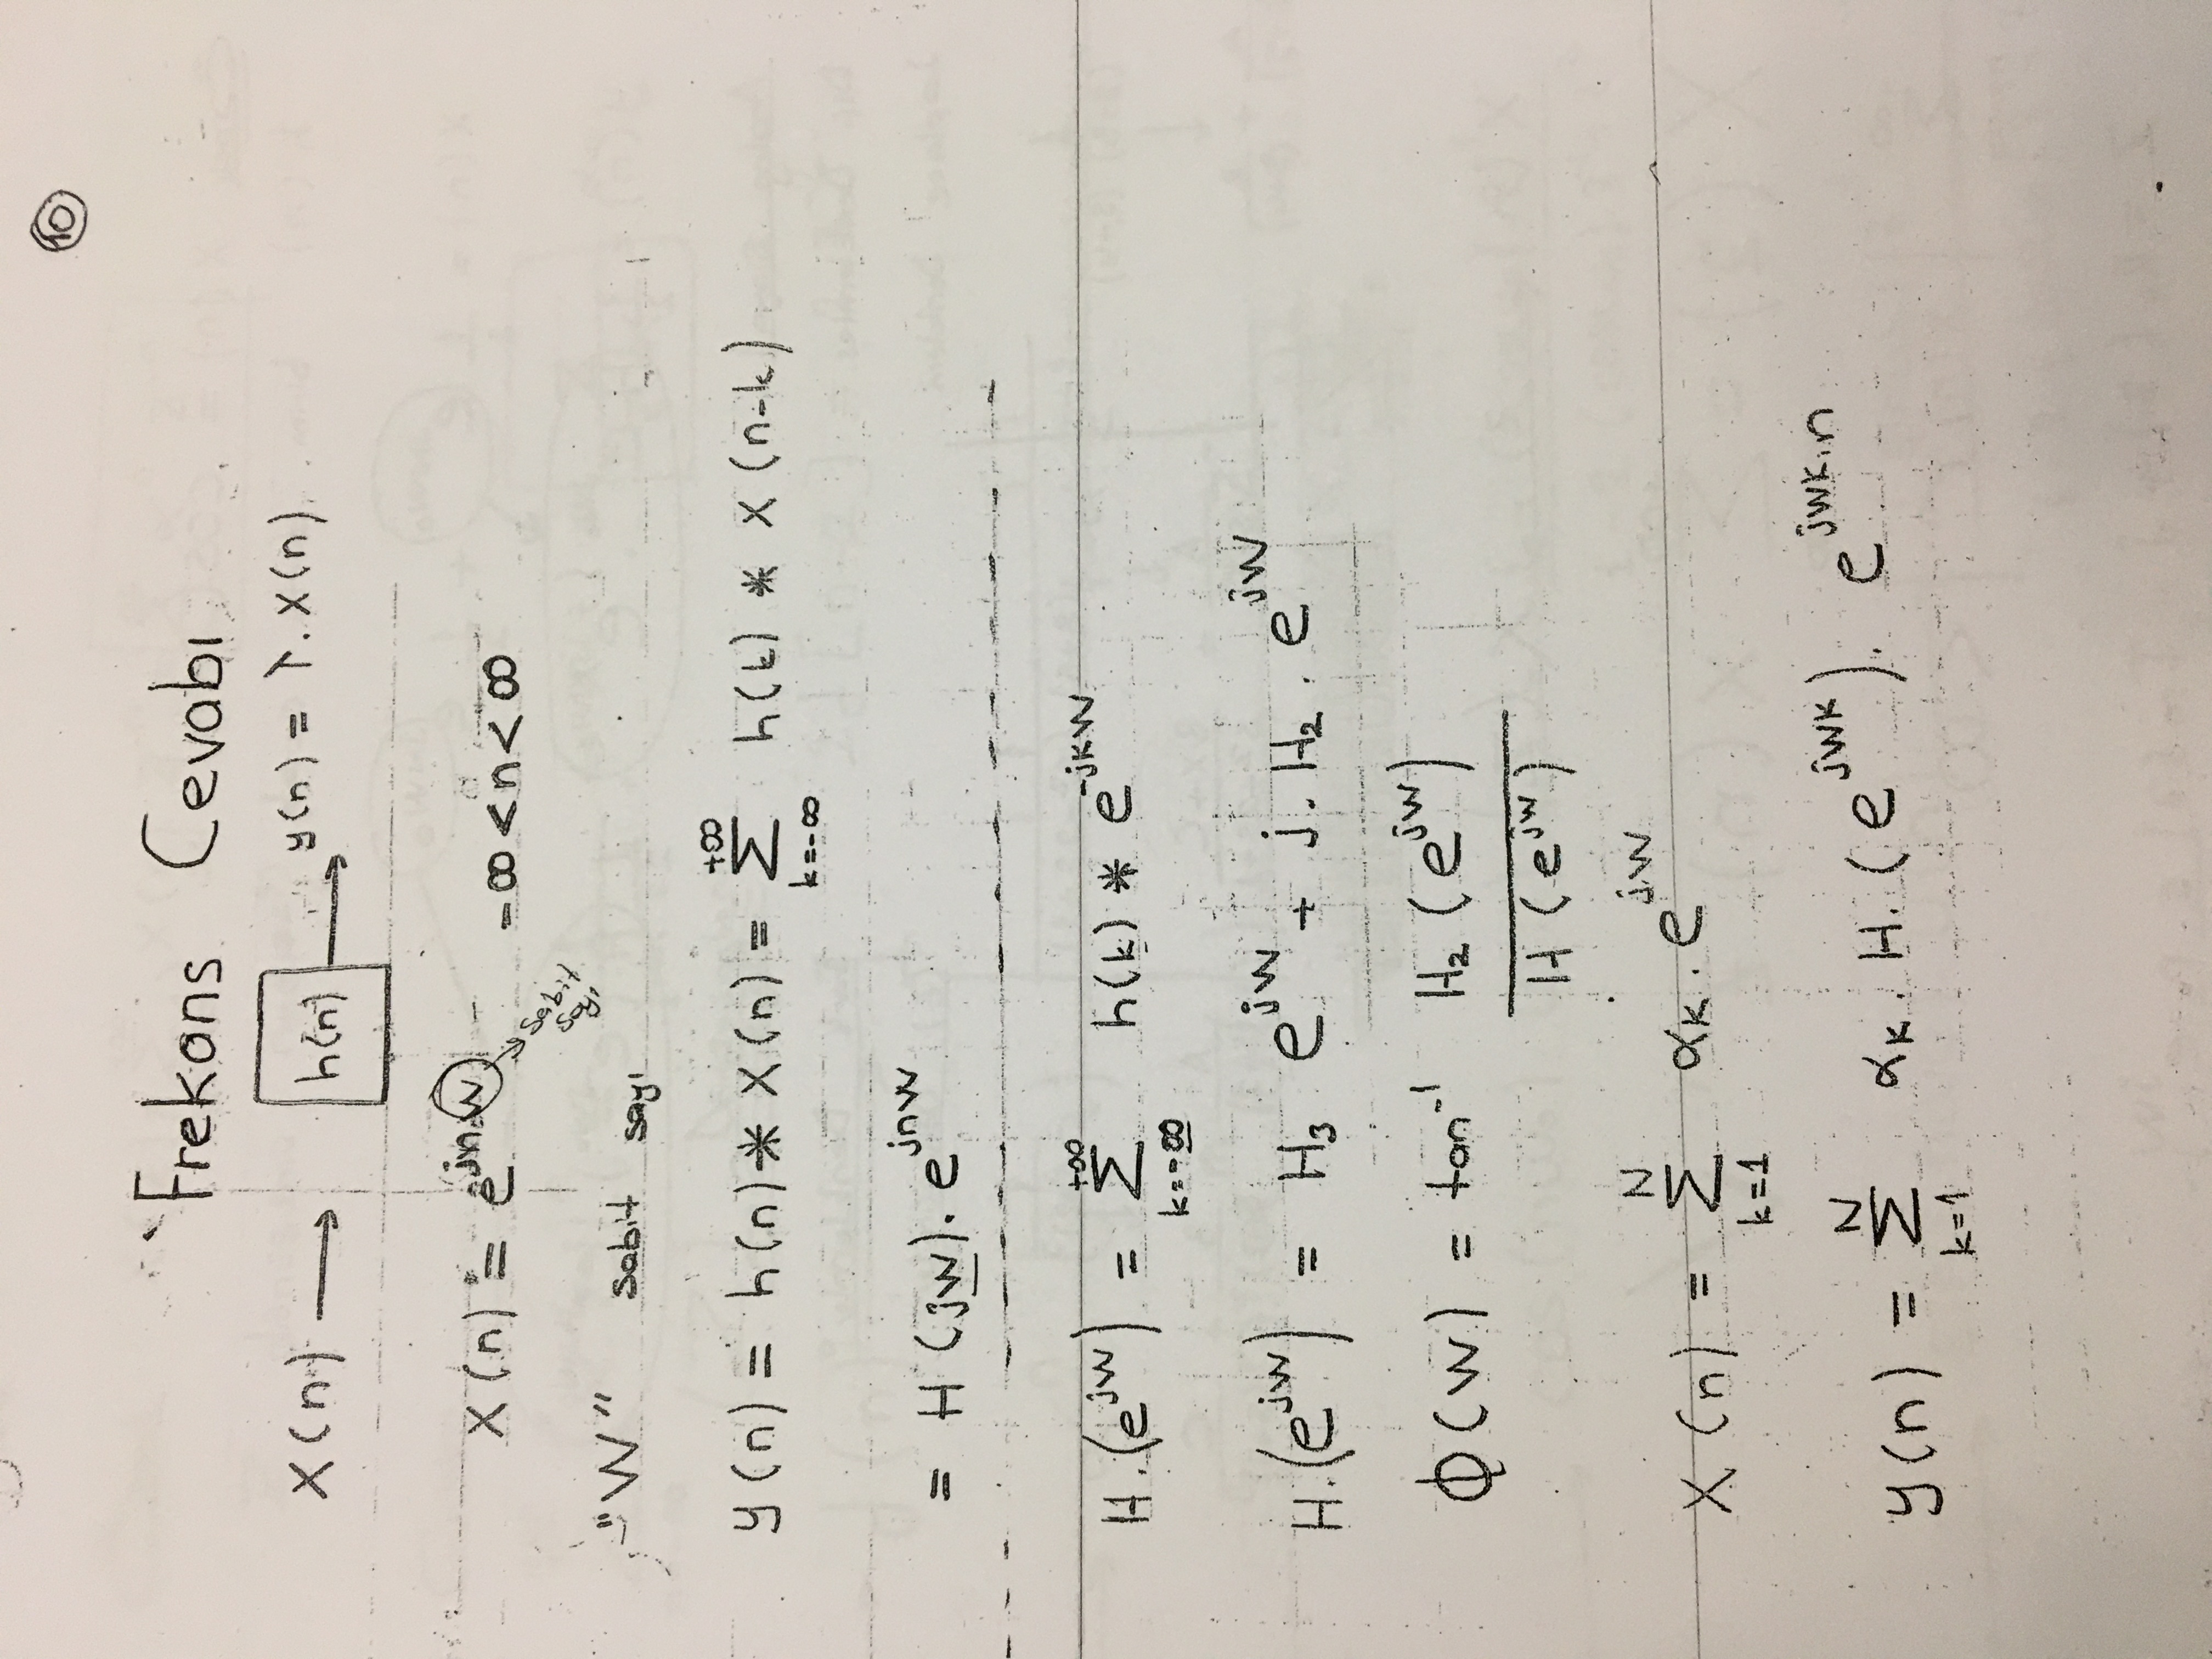 10
Frekans Cevabı
X(n) → h(n) → y(n) = λ.X(n)
X(n) = e^{jn.w} -∞ < n < ∞
sabit
"W" sabit sayı
y(n) = h(n) * X(n) = \sum_{k=-∞}^{+∞} h(k) * X(n-k)
= H(jw). e^{jnw}
H.(e^{jw}) = \sum_{k=-∞}^{+∞} h(k) * e^{-jkw}
H.(e^{jw}) = H_3 e^{jw} + j. H_2 . e^{jw}
Φ(w) = tan^{-1} \frac{H_2 (e^{jw})}{H (e^{jw})}
X(n) = \sum_{k=1}^{N} α_k . e^{jw}
y(n) = \sum_{k=1}^{N} α_k . H. (e^{jwk}). e^{jwk.n}